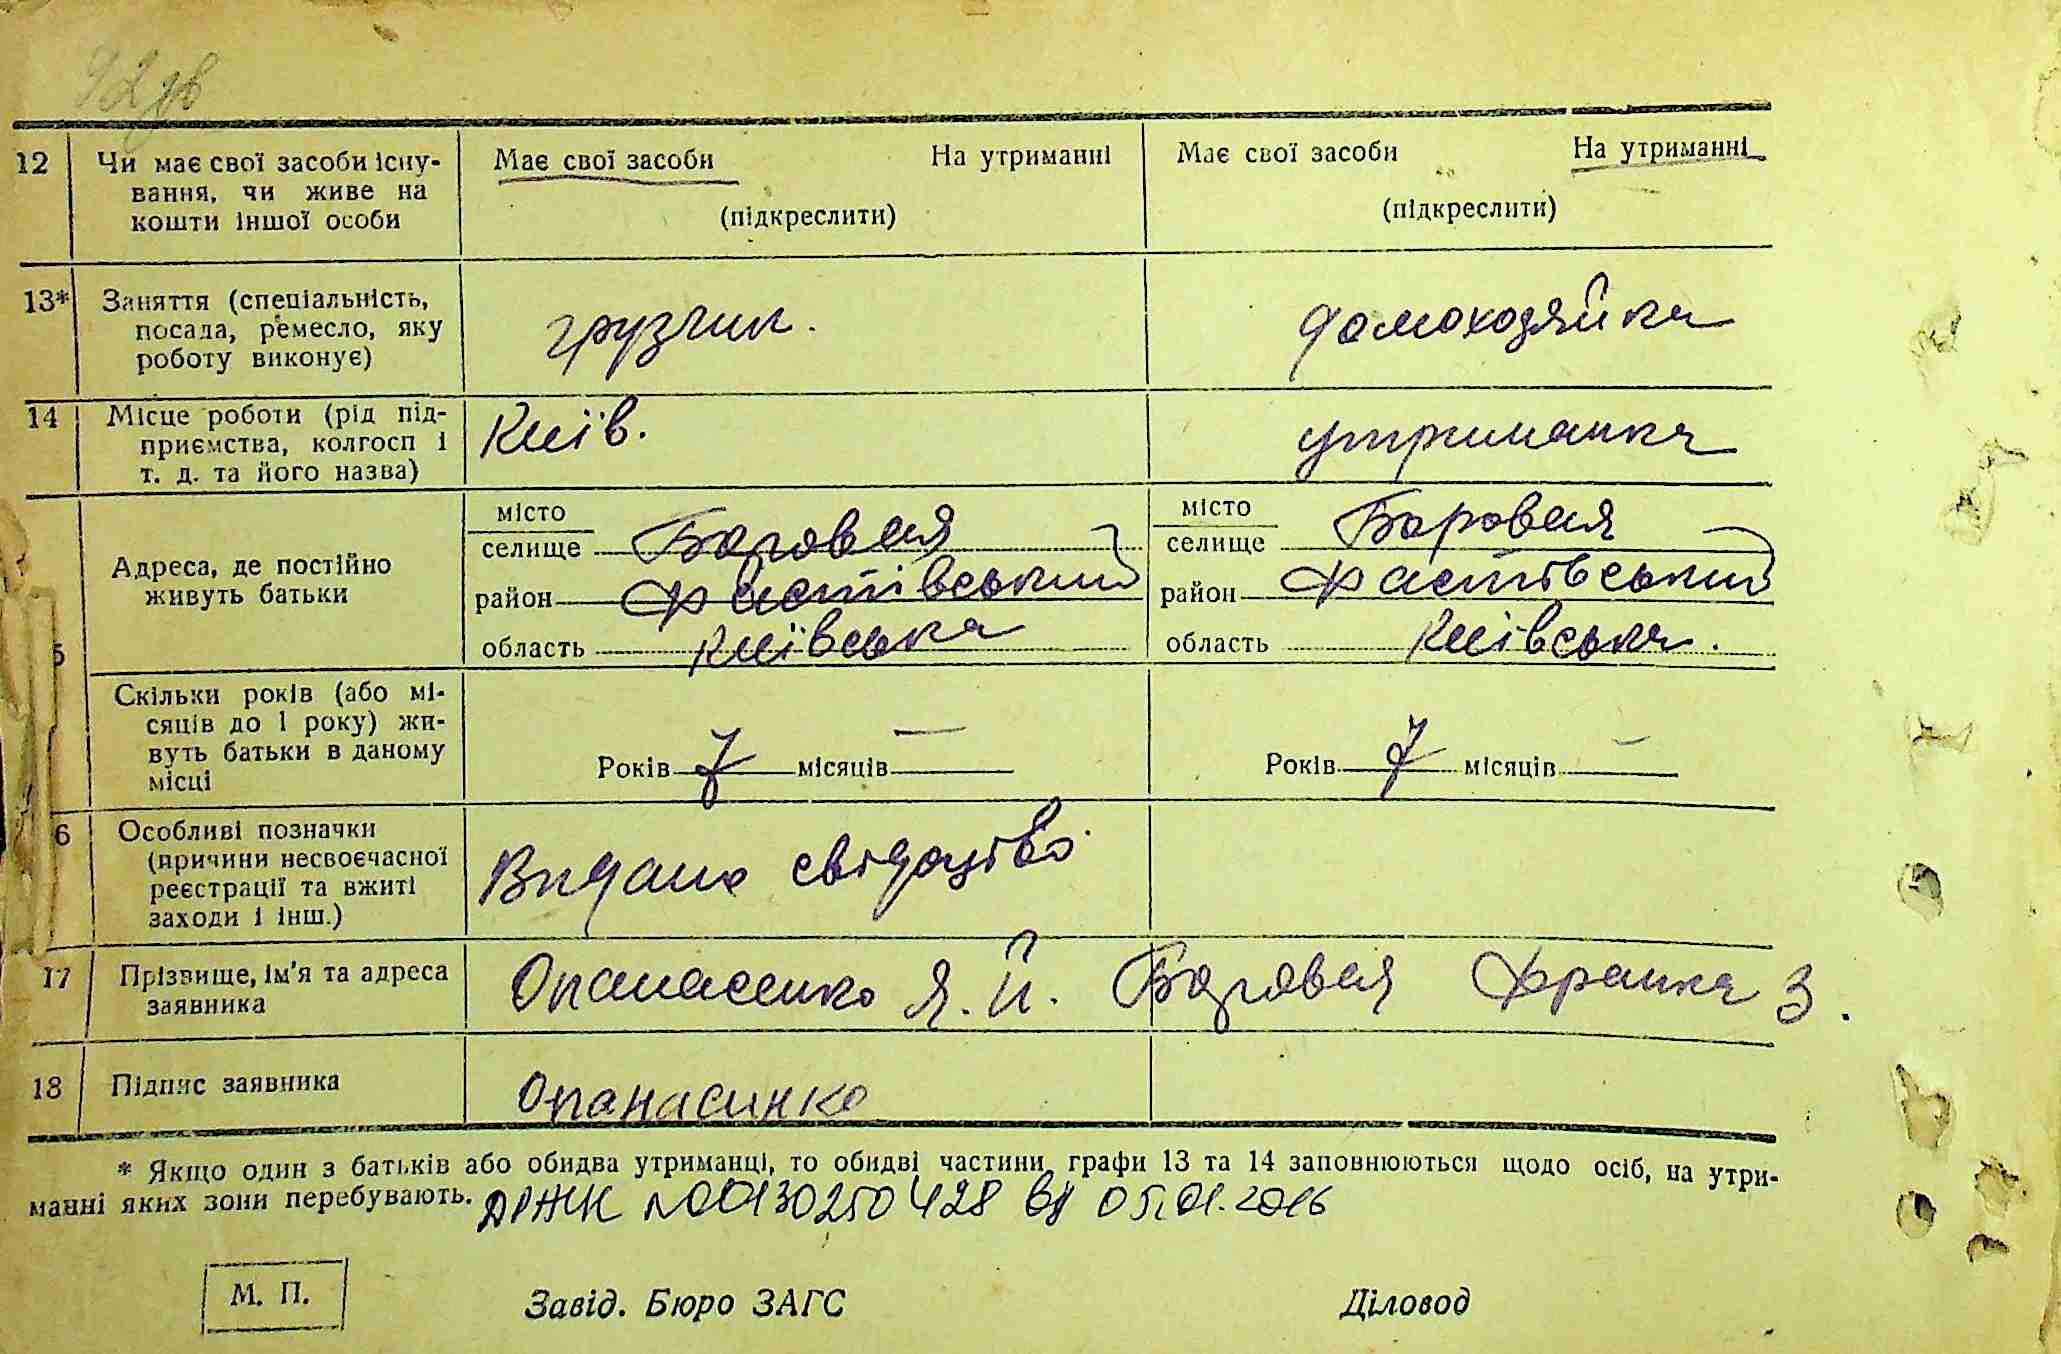 92 зв
12 Чи має свої засоби існу- Має свої засоби На утриманні Має свої засоби На утриманні
вання, чи живе на
кошти іншої особи (підкреслити) (підкреслити)
13* Заняття (спеціальність,
посада, ремесло, яку грузчик. домохозяйка
роботу виконує)
14 Місце роботи (рід під- Київ. утриманка
приємства, колгосп і
т. д. та його назва)
місто місто
селище Боровая селище Боровая
Адреса, де постійно
живуть батьки район Фастівський район Фастівський
5 область Київська область Київська.
Скільки років (або мі-
сяців до 1 року) жи-
вуть батьки в даному Років 7 місяців — Років 7 місяців —
місці
6 Особливі позначки
(причини несвоєчасної Видано свідоцтво
реєстрації та вжиті
заходи і інш.)
17 Прізвище, ім'я та адреса Опанасенко Я. Й. Боровая Франка 3.
заявника
18 Підпис заявника Опанасинко
* Якщо один з батьків або обидва утриманці, то обидві частини графи 13 та 14 заповнюються щодо осіб, на утри-
манні яких вони перебувають. ДРЖК №00130250428 від 05.01.2016
М. П. Завід. Бюро ЗАГС Діловод